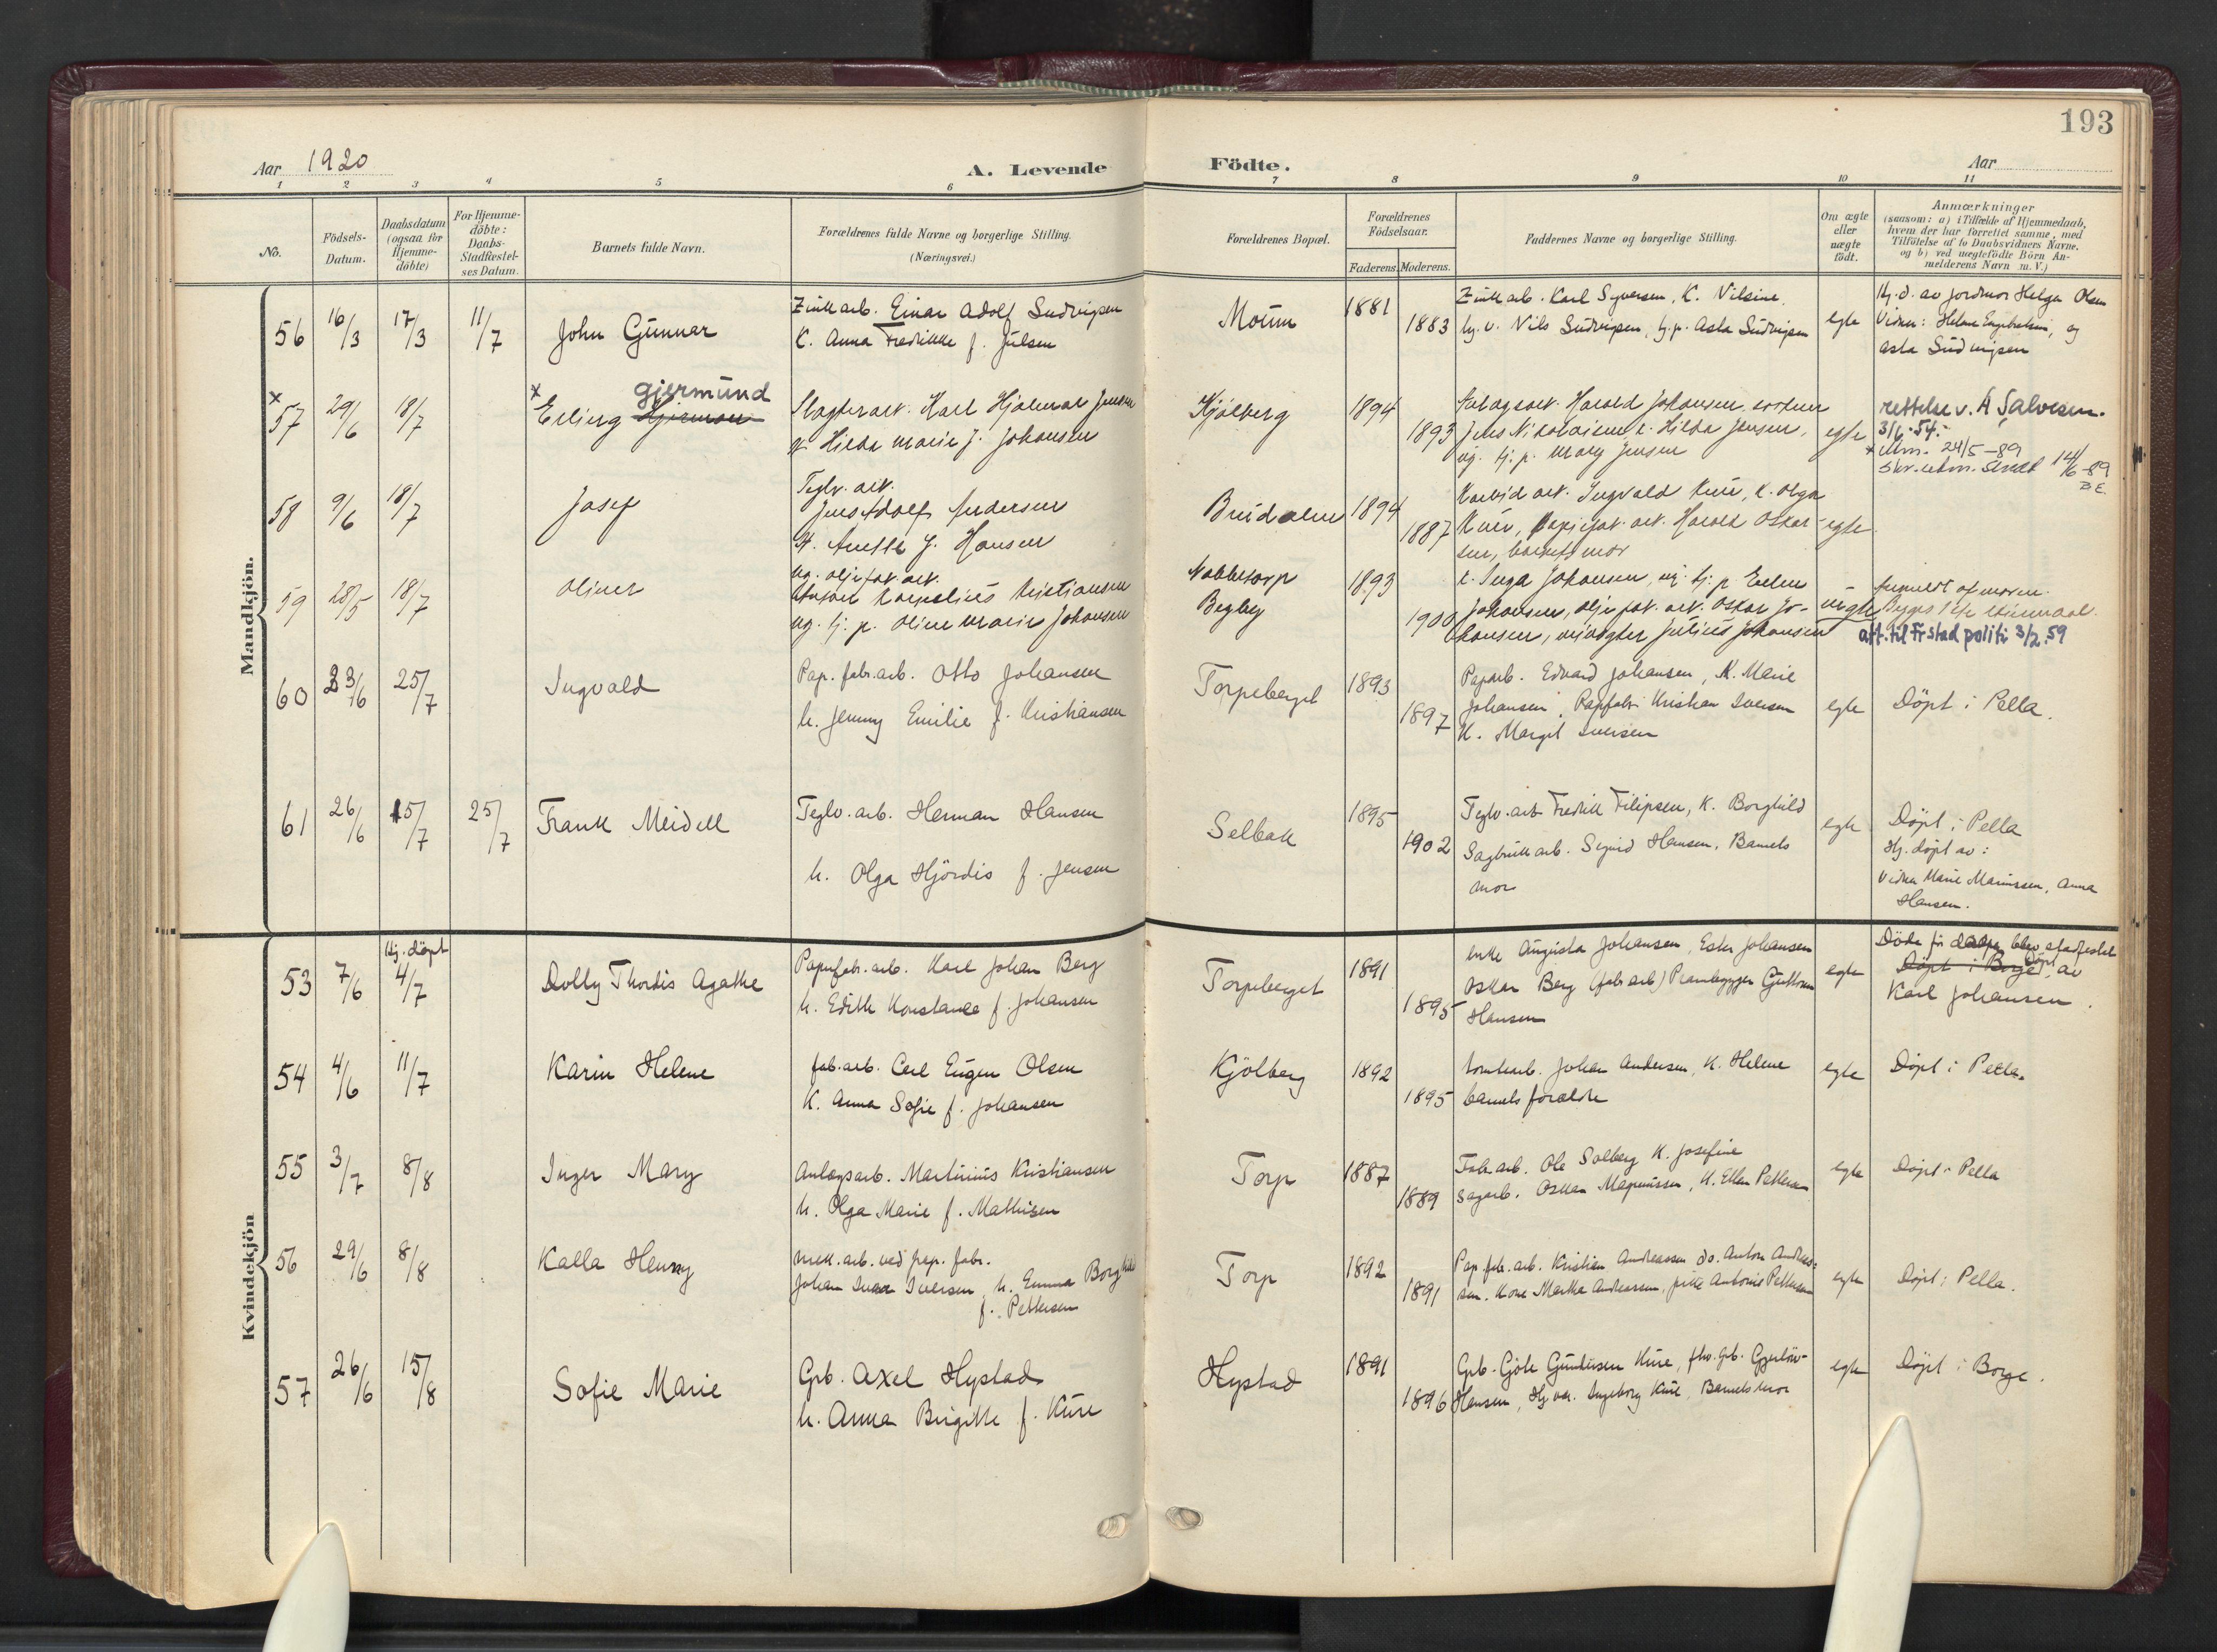 193
Aar 1920
A. Levende Födte.
Aar
1 2 3 4 5 6 7 8 9 10 11
No.
Födsels-
Datum.
Daabsdatum
(ogsaa for
Hjemme-
döbte)
For Hjemme-
döbte:
Daabs-
Stadfæstel-
ses Datum.
Barnets fulde Navn.
Forældrenes fulde Navne og borgerlige Stilling.
(Næringsvei.)
Forældrenes Bopæl.
Forældrenes
Födselsaar.
Faderens. Moderens.
Faddernes Navne og borgerlige Stilling.
Om ægte
eller
uægte
födt.
Anmærkninger
(saasom: a) i Tilfælde af Hjemmedaab,
hvem der har forrettet samme, med
Tilföielse af to Daabsvidners Navne.
og b) ved uægtefödte Börn An-
melderens Navn m. V.)
Mandkjön.
56 16/3 17/3 11/7 John Gunnar
Zinkarb. Einar Adolf Ludvigsen
K. Anna Fredrikke f. Julsen
Moum 1881 1883
Zinkarb. Karl Syversen, K. Nilsine
Nils Ludvigsen, tj.p. Asta Ludvigsen
egte
Hj.d. av jordmor Helga Olsen
Vidner: Helene Engebretsen, og
Asta Ludvigsen
x 57 29/6 18/7 x Erling Hjerman gjermund
Slagterarb. Karl Hjalmar Jensen
K. Hilda Marie f. Johansen
Kjölberg 1894 1893
Anlagsarb. Harald Johansen,
Jens Nikolaisen, K. Hilda Jensen,
ug. tj.p. Mary Jensen
egte
rettelse v. A Salvesen.
3/6-54.-
x utm. 24/5-89
skr. utm. sendt 14/6-89
BE.
58 9/6 18/7 Josef
Teglv. arb.
Jens Adolf Andersen
K. Anette f. Hansen
Buidalen 1894 1887
Karbid arb. Ingvald Kure, K. Olga
Kure, Papirfab. arb. Harald Oskar-
sen, barnets mor
egte
59 28/5 18/7 Oliver
ug. oljefab. arb.
Kornelius Kristiansen
ug. tj.p. Oline Marie Johansen
Nabbetorp
Begby
1893 1900
K. Inga Johansen, ug. tj.p. Evelun
Johansen, oljefab. arb. Oskar Jo-
hansen, Julius Johansen
uegte
Anmeldt af moren.
att. til Fr.stad politi 3/2.59
60 23/6 25/7 Ingvald
Pap. fabr. arb. Otto Johansen
K. Jenny Emilie f. Kristiansen
Torpeberget 1893 1897
Paparb. Edvard Johansen, K. Marie
Johansen, Papfabr. Kristian Iversen
K. Margit Iversen
egte
Döpt i Pella.
61 26/6 15/7 25/7 Frank Meidell
Teglv. arb. Herman Hansen
K. Olga Hjördis f. Jensen
Selbak 1895 1902
Teglv. arb Fredrik Filipsen, K. Borghild
Sagbruk arb. Sigurd Hansen, Barnets
mor
egte
Döpt i Pella
Hj. döpt av:
Vidner Marie Marinssen, Anna
Hansen.
Kvindekjön
Hj. döpt
53 7/6 4/7 Dolly Thordis Agathe
Papirfabr. arb. Karl Johan Berg
K. Edith Konstance f. Johansen
Torpeberget 1891 1895
enke Augusta Johansen, Ester Johansen
Oskar Berg (fabr arb) Prambygger Guttorm
Hansen
egte
Döde för daapen blev stadfestet
Döpt i Borge Döpt av
Karl Johansen.
54 4/6 11/7 Karin Helene
fab. arb. Carl Eugen Olsen
K. Anna Sofie f. Johansen
Kjölberg 1892 1895
tomtearb. Johan Andersen, K. Helene
barnets foreldre
egte
Döpt i Pella.
55 3/7 8/8 Inger Mary
Anlægsarb. Martinius Kristiansen
K. Olga Marie f. Mathisen
Torp 1887 1889
Fabr. arb. Ole Solberg K. Josefine
Sagarb. Oskar Magnussen, K. Ellen Pettersen
egte
Döpt i Pella
56 29/6 8/8 Kalla Henny
mek. arb. ved pap. fabr.
Johan Ivar Iversen, K. Emma Borghild
f. Pettersen
Torp 1892 1891
Pap. fab. arb. Kristian Andreassen do. Anton Andreas-
sen. Kone Martha Andreassen, pike Antonie Pettersen
egte
Döpt i Pella.
57 26/6 15/8 Sofie Marie
Grb. Axel Hystad
K. Anna Birgitte f. Kure
Hystad 1891 1896
Grb. Gjöle Gundersen Kure, fhv. grb. Gjerlöw-
Hansen, Hj. vær. Ingeborg Kure, Barnets mor
egte
Döpt i Borge.